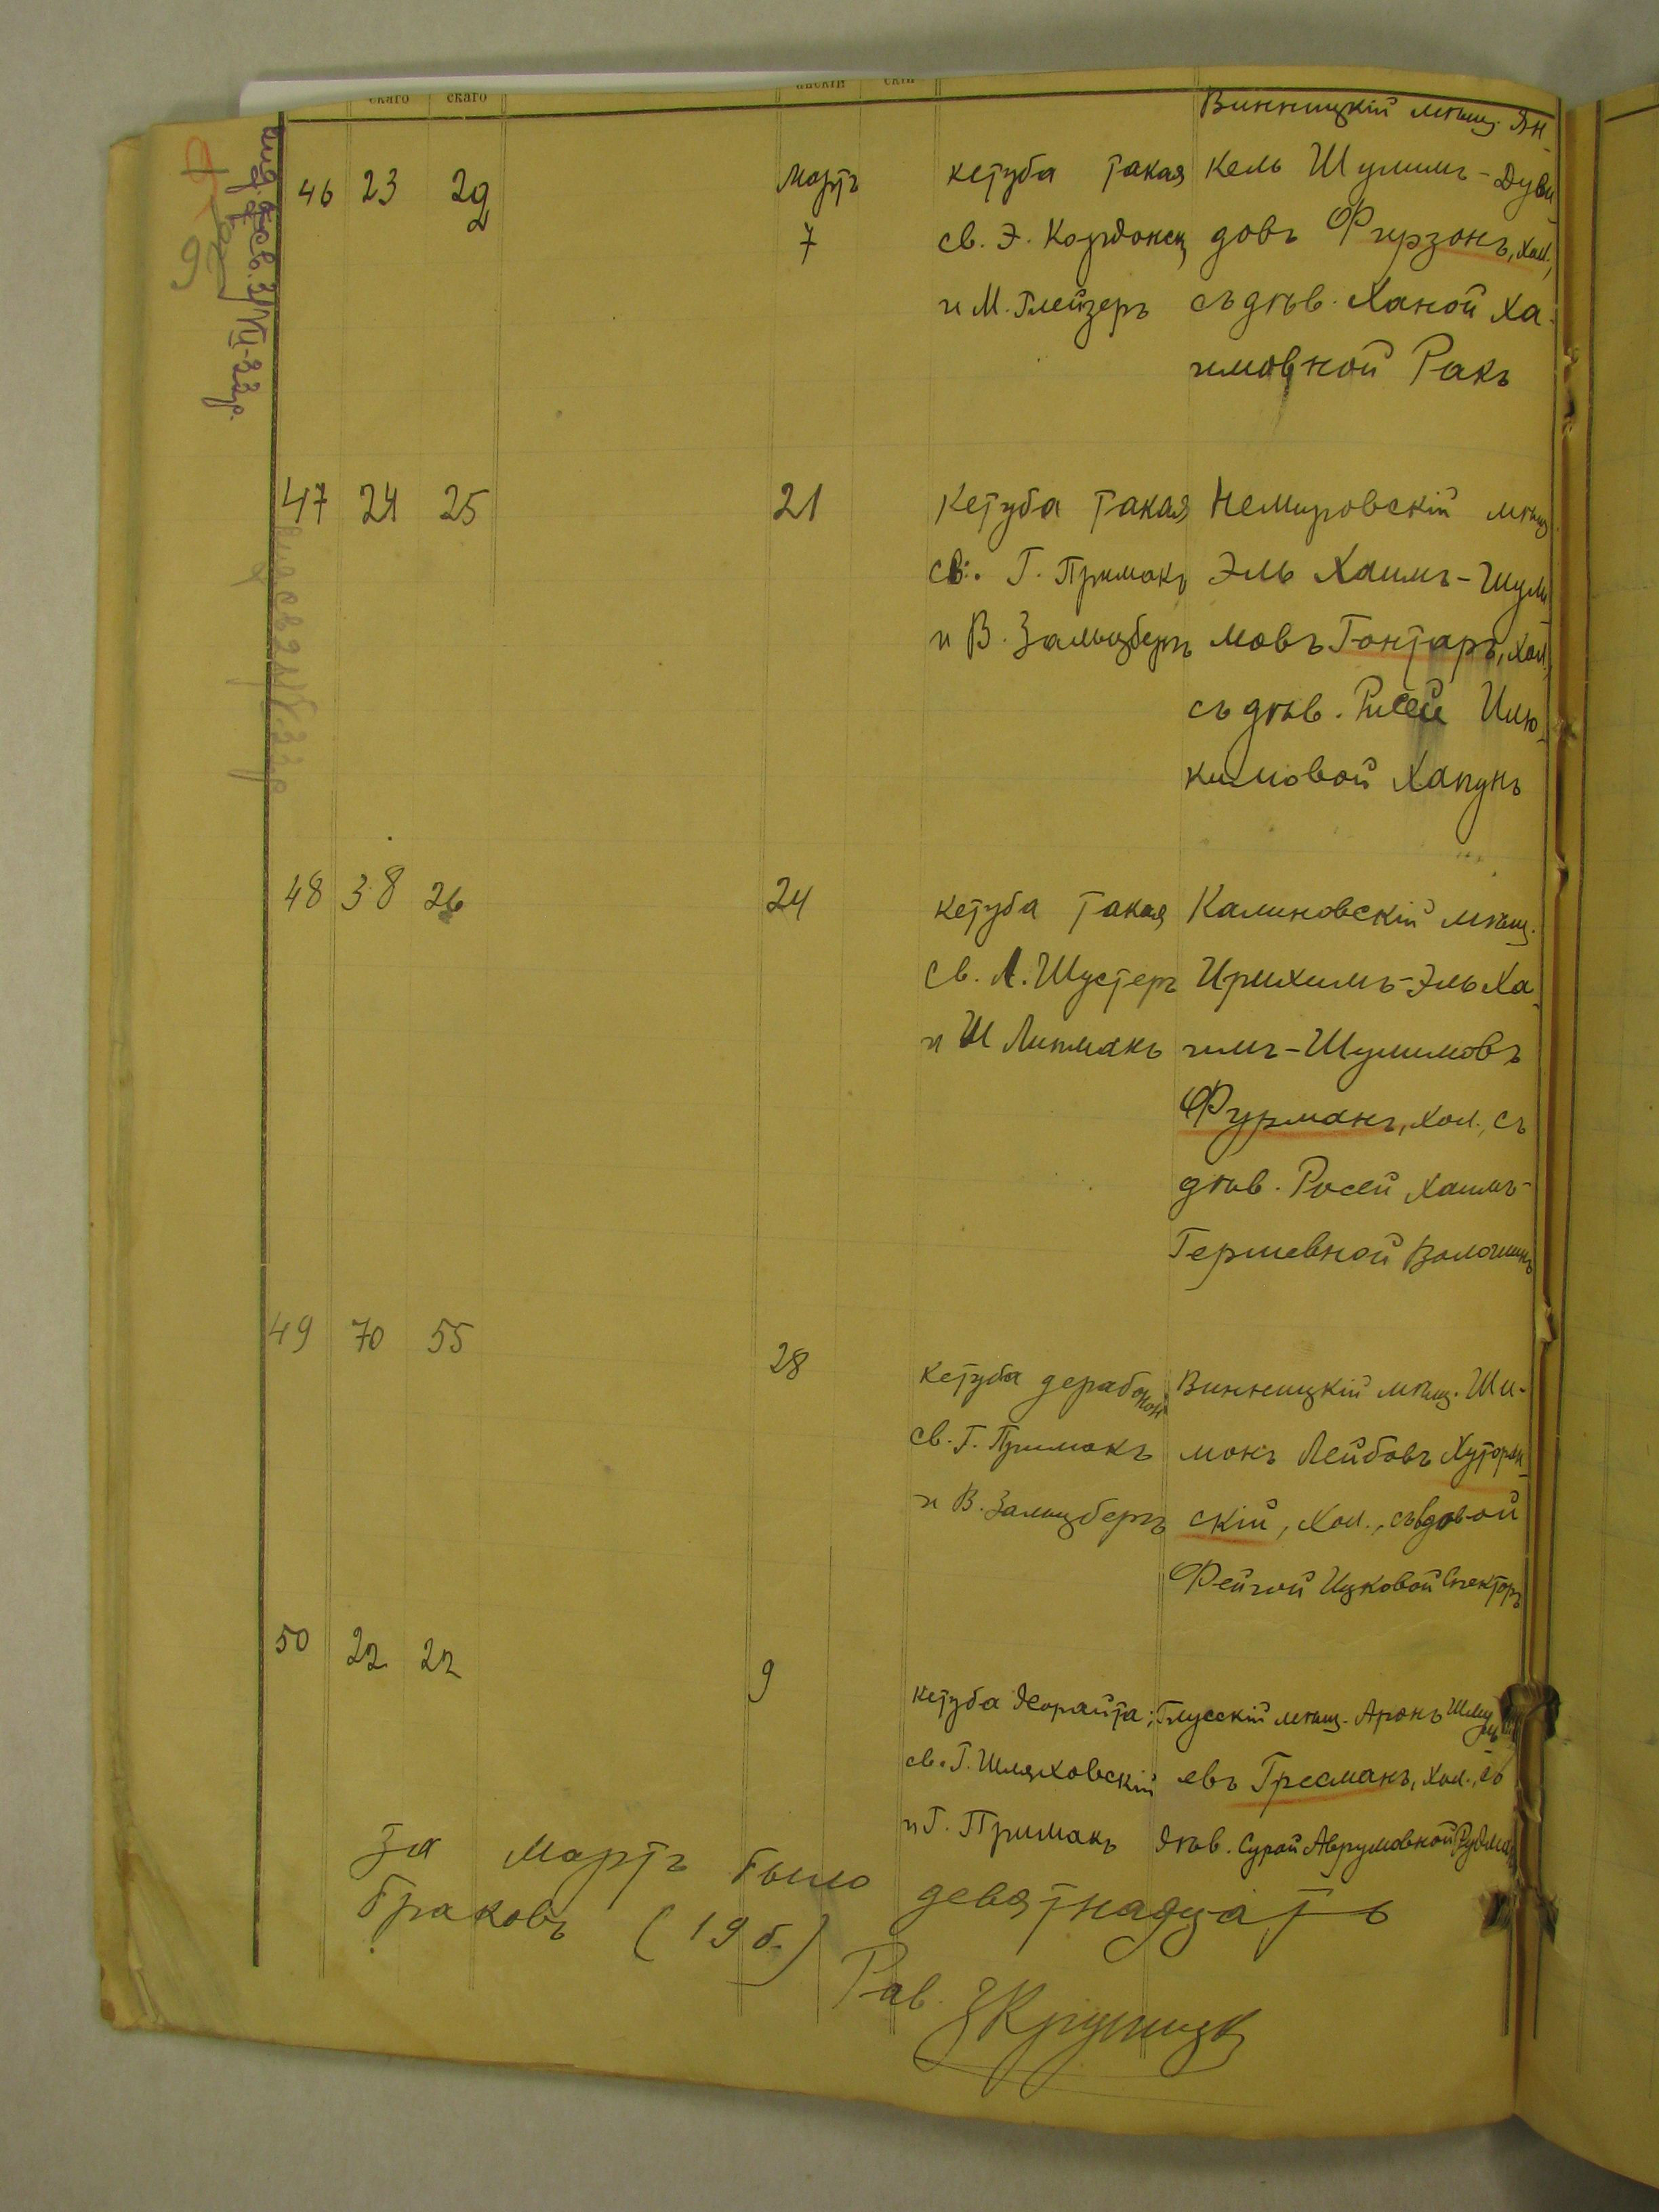 скаго скаго
Винницкій мѣщ. Ян-
46 23 29 Мартъ кетуба такая кель Шулимъ-Дуви-
7 св. Э. Кордонск довъ Фирзонъ, хол.,
и М. Глейзеръ съ дѣв. Ханой Ха-
имовной Ракъ
47 24 25 21 Кетуба такая Немировскій мѣщ
св. Г. Примакъ Эль Хаимъ-Шули
и В. Зальцбергъ мовъ Гонтаръ, хол,
съ дѣв. Рисей Ишо-
кимовой Хапунъ
48 38 26 24 кетуба такая Калиновскій мѣщ.
св. Л. Шустеръ Ирихимъ-Эль Ха-
и Ш Липманъ имъ-Шулимовъ
Фурманъ, хол., съ
дѣв. Росей Хаимъ-
Гершевной
49 70 55 28 кетуба дерабонон Винницкій мѣщ. Ши-
св. Г. Примакъ монъ Лейбовъ Хуторян-
и В. Зальцбергъ скій, хол., съ вдовой
Фейгой Ицковой Спекторъ
50 22 22 9 кетуба деорайта; Глусскій мѣщ. Аронъ
св. Г. Шляховскій евъ Гресманъ, хол., съ
и Г. Примакъ дѣв. Сурой Аврумовной
За Мартъ было девятнадцать
браковъ (19 б.)
Рав.